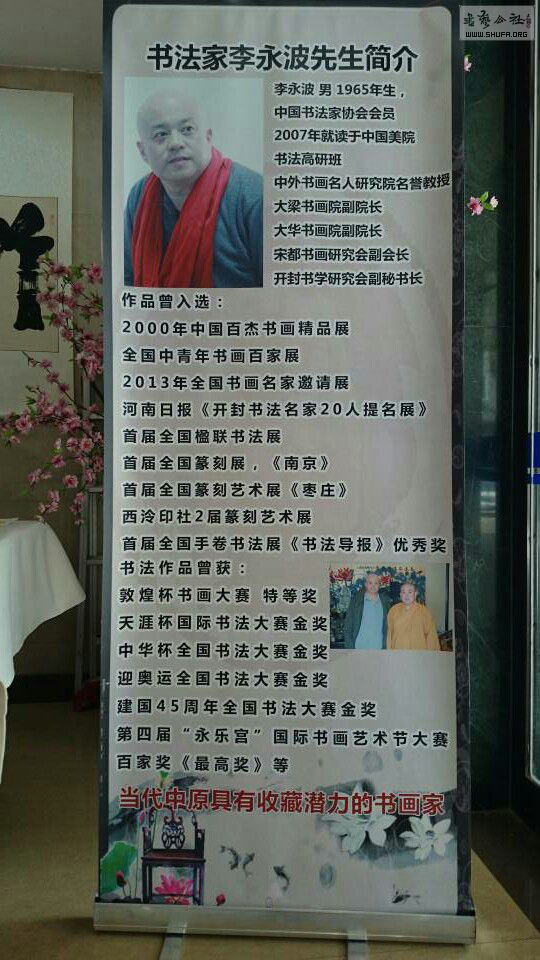 书艺公社
WWW.SHUFA.ORG
书法家李永波先生简介
李永波 男 1965年生，
中国书法家协会会员
2007年就读于中国美院
书法高研班
中外书画名人研究院名誉教授
大梁书画院副院长
大华书画院副院长
宋都书画研究会副会长
开封书学研究会副秘书长
作品曾入选：
2000年中国百杰书画精品展
全国中青年书画百家展
2013年全国书画名家邀请展
河南日报《开封书法名家20人提名展》
首届全国楹联书法展
首届全国篆刻展，《南京》
首届全国篆刻艺术展《枣庄》
西泠印社2届篆刻艺术展
首届全国手卷书法展《书法导报》优秀奖
书法作品曾获：
敦煌杯书画大赛 特等奖
天涯杯国际书法大赛金奖
中华杯全国书法大赛金奖
迎奥运全国书法大赛金奖
建国45周年全国书法大赛金奖
第四届“永乐宫”国际书画艺术节大赛
百家奖《最高奖》等
当代中原具有收藏潜力的书画家